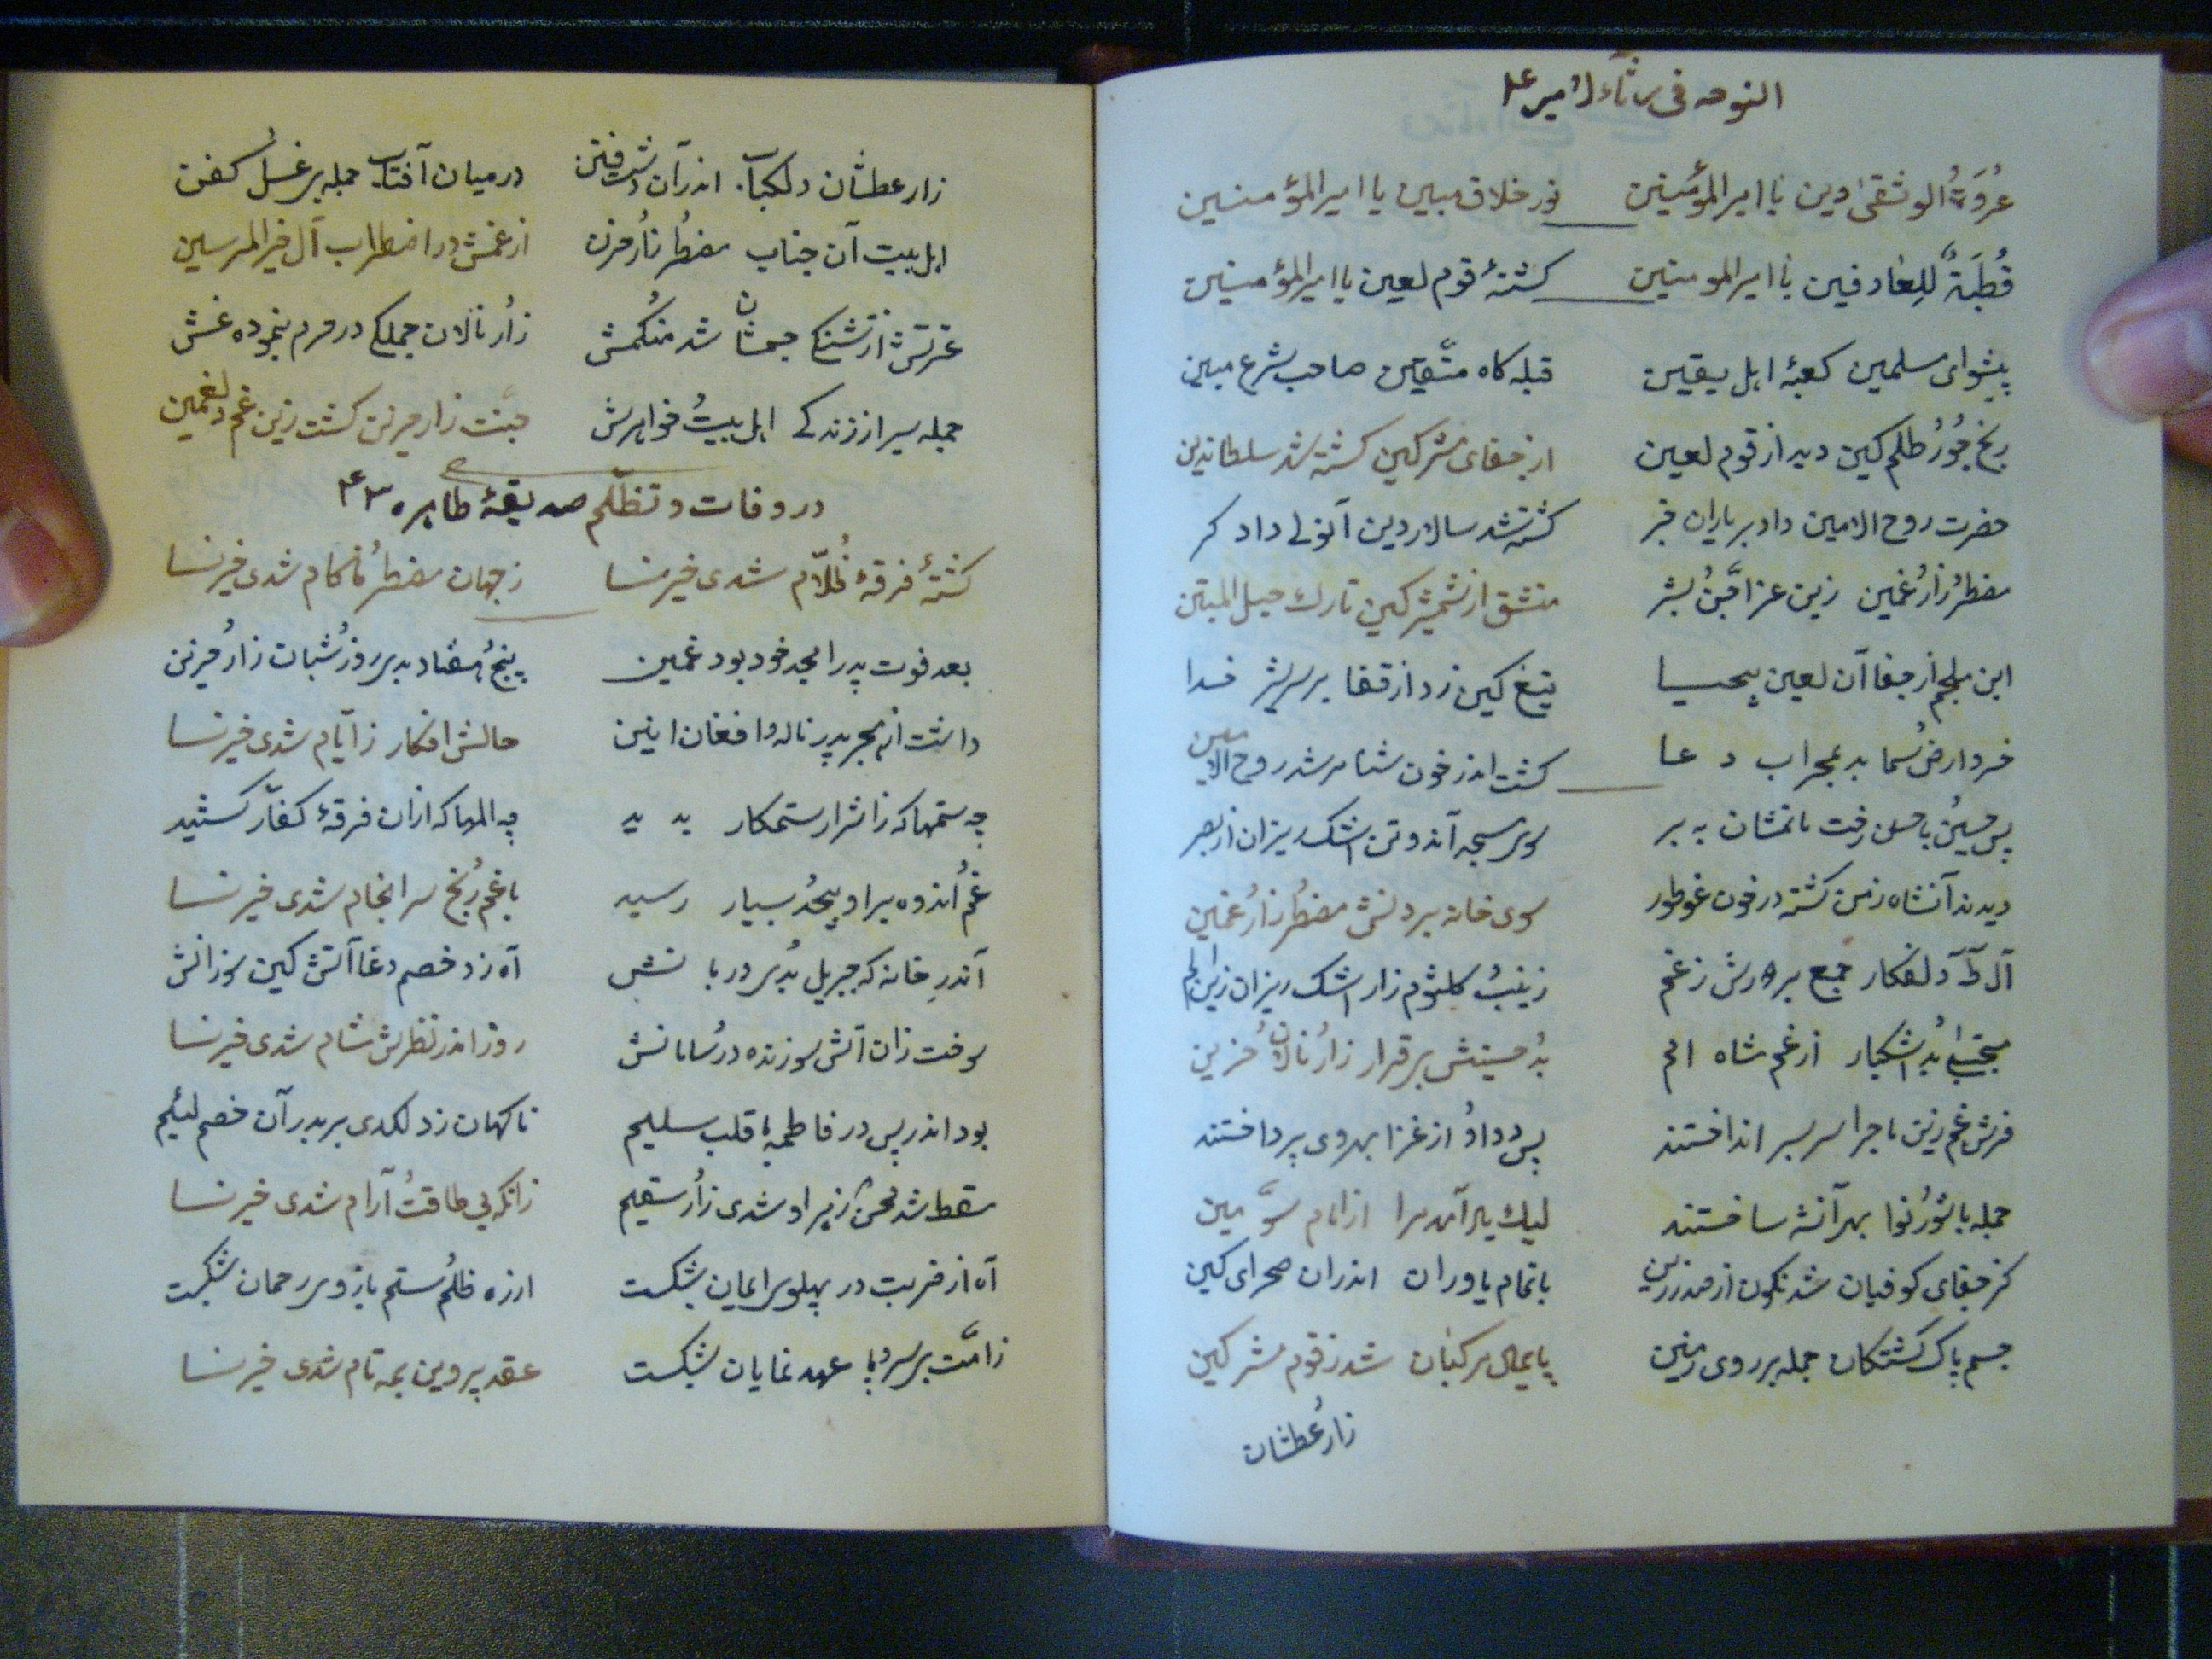 النوحه فی رثاء الامیر ع
عُروَةُ الوثقیٰ دین یا امیر المؤمنین نور خلاق مبین یا امیر المؤمنین
قُطبَةً لِلعارفین یا امیر المومنین کشتهٔ قوم لعین یا امیر المؤمنین
پیشوای مسلمین کعبهٔ اهل یقین قبله کاه متّقین صاحب شرع مبین
رنج جُورُ ظلم کین دید از قوم لعین از جفای مشرکین کشته شد سلطاندین
حضرت روح الامین داد بر یاران خبر کشته شد سالار دین آنولی دادکر
مضطرُ زارُ غمین زین عزا جنُ بشر منشق از شمشیر کین تارک حبل المتین
ابن ملجم از جفا آن لعین بیحیا تیغ کین زد از قفا بر سر شیر خدا
خسرو ارض سما بد بمحراب دعا کشت اندر خون شنا مرشد روح الامین
پس حسینُ با حسن رخت ماتمشان به بر سوی مسجد آندوتن اشک ریزان از بصر
دیدند آنشاه زمن کشته در خون غوطه‌ور سوی خانه بردنش مضطرُ زارُ غمین
آل طٓه دلفکار جمع بر دورش ز غم زینبُ کلثوم زار اشک ریزان زین الم
مجتبیٰ بُد اشکبار از غم شاه امم بُد حسینش بیقرار زارُ نالانُ حزین
فرش غم زین ماجرا سر بسر انداختند پس دوداوُ از عزا بهر وی پرداختند
جمله با شورُ نوا بهر آنشه ساختند لیک یاد آمد مرا از امام سوّمین
کز جفای کوفیان شد نکون از صدر زین با تمام یاوران اندران صحرای کین
جسم پاک کشتکان جمله بر روی زمین پایمال مرکبان شد ز قوم مشرکین
زارُ عطشان
زار عطشان دلکباب اندرآن دشت فتن در میان آفتاب جمله بی غسلُ کفن
اهل بیت آن جناب مضطرُ زارُ حزن از غمش در اضطراب آل خیر المرسلین
عترتش از تشنکی جمشان شد منکمش زارُ نالان جملکی در حرم بنموده غش
جمله سیر از زندکی اهل بیتُ خواهرش جنّت زار حزین کشت زین غم دلغمین
در وفات و تظلّم صدیقهٔ طاهره ۴۳
کشتهٔ فرقهٔ ظُلّام شدی خیر نسا ز جهان مضطرُ ناکام شدی خیر نسا
بعد فوت پدر امجد خود بود غمین پنجُ هفتاد بدی روزُ شبان زارُ حزین
داشت از هجر پدر ناله و افغان انین حالش افکار ز ایّام شدی خیر نسا
چه ستمها که ز اشرار ستمکار بدید چه المها که از ان فرقهٔ کفّار کشید
غمُ اندوه براو بیحدُ بسیار رسید با غمُ رنج سرانجام شدی خیر نسا
آندر خانه که جبریل بُدی دربانش آه زد خصم دغا آتش کین سوزانش
سوخت زان آتش سوزنده در سامانش روز اندر نظرش شام شدی خیر نسا
بود اندر پس در فاطمه با قلب سلیم ناکهان زد لکدی بر در آن خصم لئیم
سقط شد محسن زهرا و شدی زارُ سقیم زانکه بی طاقتُ آرام شدی خیر نسا
آه از ضربت در پهلوی ایمان بشکست از ره ظلمُ ستم بازوی رحمان بشکست
زامّت بی سر و پا عهد نمایان بشکست عقد پروین همه تام شدی خیر نسا